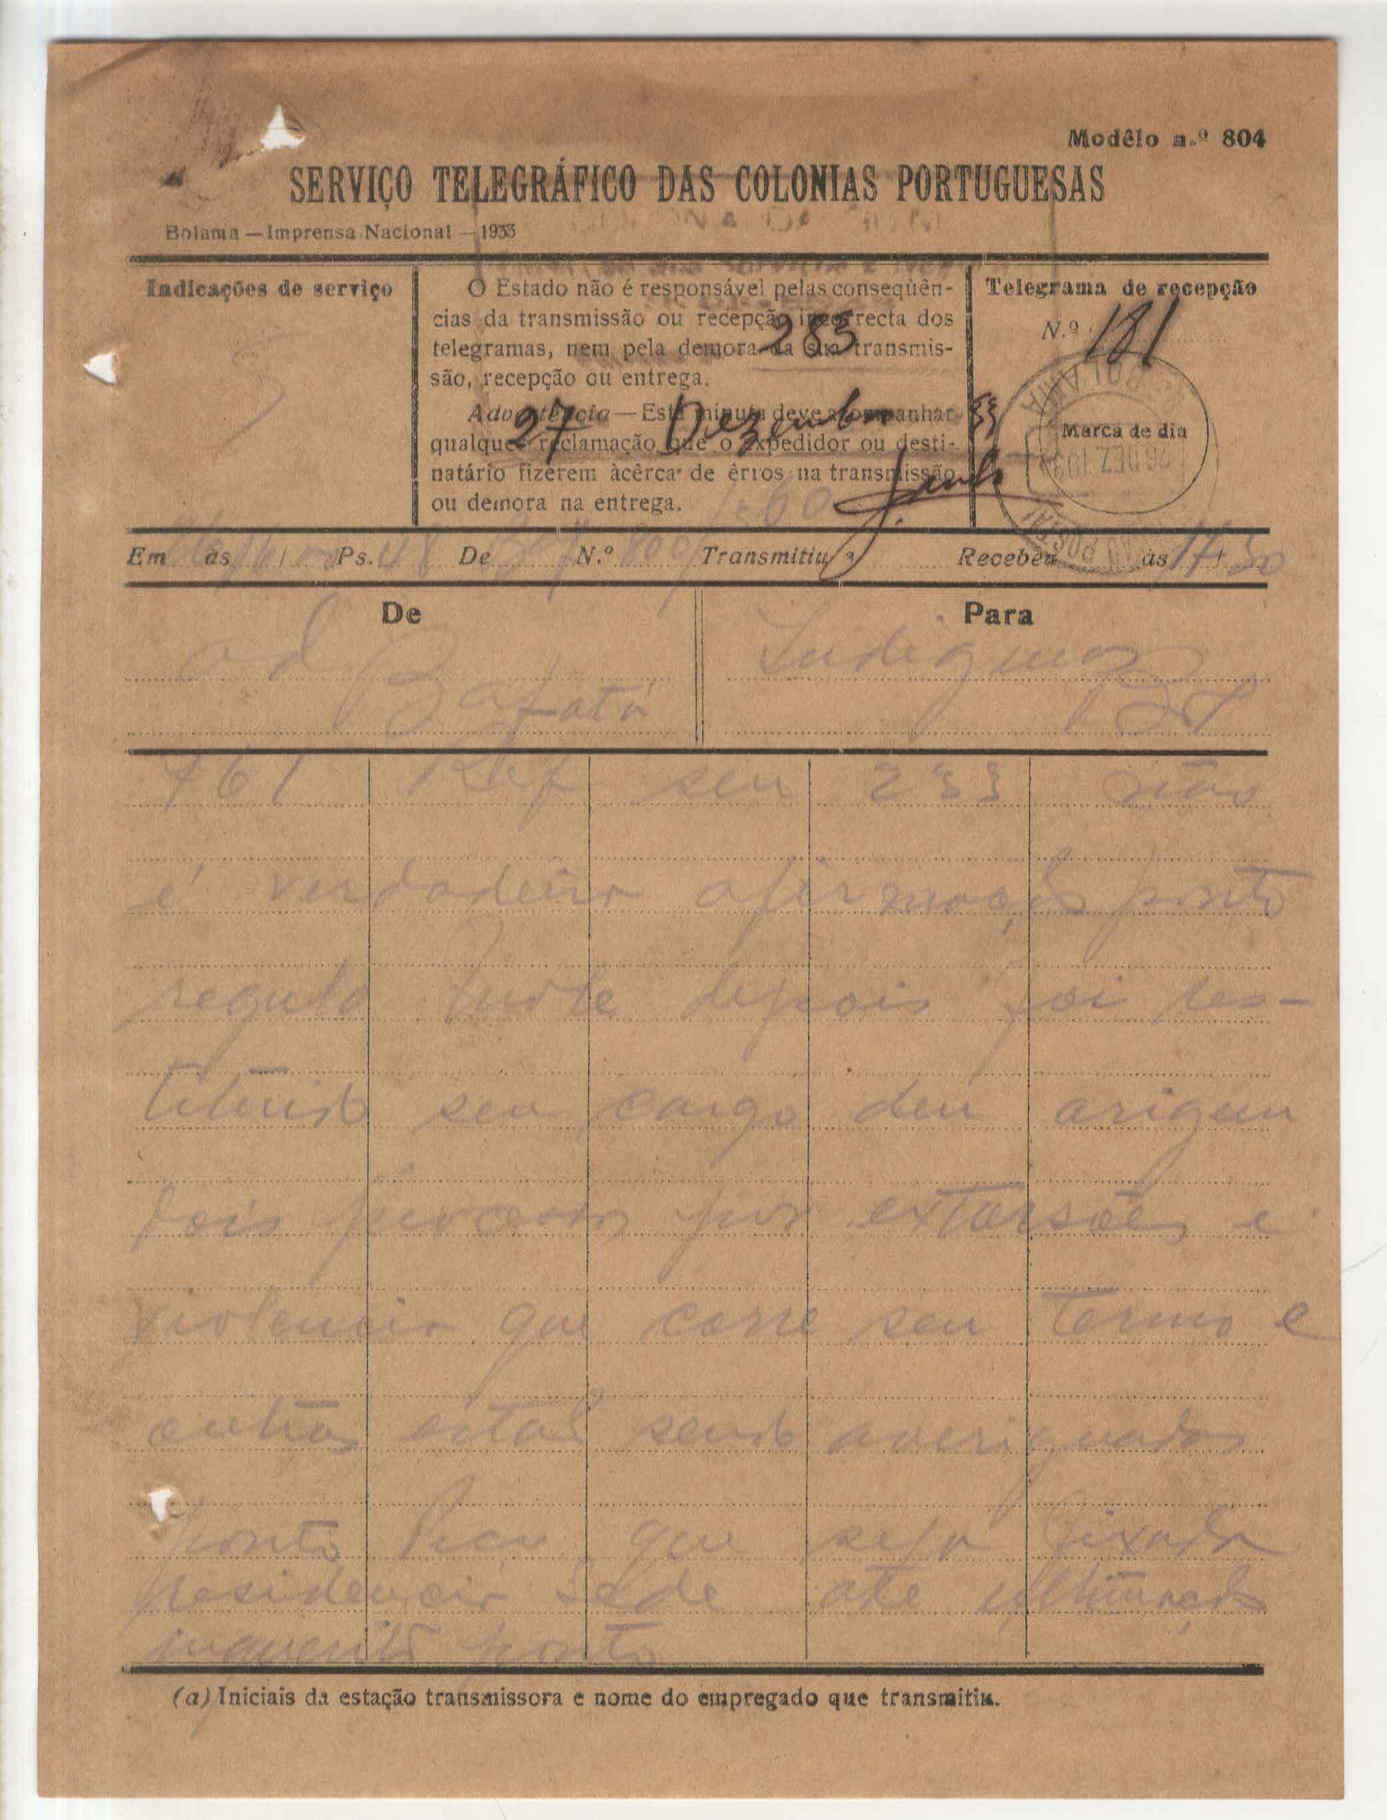 Modêlo n.º 804
SERVIÇO TELEGRÁFICO DAS COLONIAS PORTUGUESAS
Bolama — Imprensa Nacional — 1933
Indicações de serviço
O Estado não é responsável pelas conseqüên-
cias da transmissão ou recepção incorrecta dos
telegramas, nem pela demora da sua transmis-
são, recepção ou entrega.
Advertência — Esta minuta deve acompanhar
qualquer reclamação que o expedidor ou desti-
natário fizerem àcêrca de êrros na transmissão
ou demora na entrega.
285
27 Dezembro 33
Telegrama de recepção
N.º 181
BOLAMA
Marca de dia
26 DEZ. 193
Em às Ps. 48 De N.º 800 Transmitiu a Recebeu às 17 30
De
Para
ad
Bafatá
Indigenas
761 Ref seu 233 não
é verdadeira afirmação ponto
regulo depois foi res-
tituido seu cargo deu origem
dois processos por extorsões e
violencia que corre seu termo e
outros estaõ sendo averiguados
ponto Peço que seja fixada
residencia sede ate ultimação
inquerito ponto
(a) Iniciais da estação transmissora e nome do empregado que transmitiu.